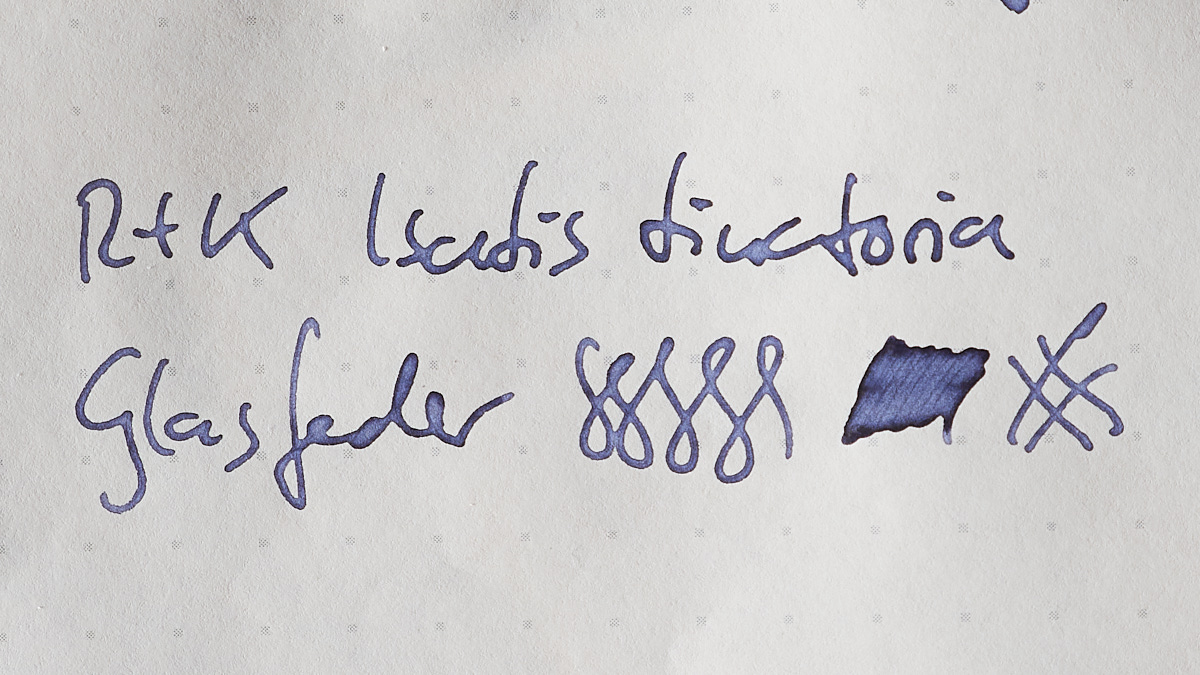 R+K Isatis tinctoria
Glasfeder